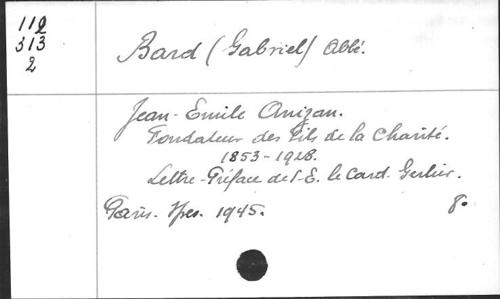 112
313
2
Bard (Gabriel) Abbé.
Jean-Emile Anizan.
Fondateur des Fils de la Charité.
1853-1928.
Lettre-Préface de S.E. le Card. Gerlier.
Paris. Spes. 1945. 8°